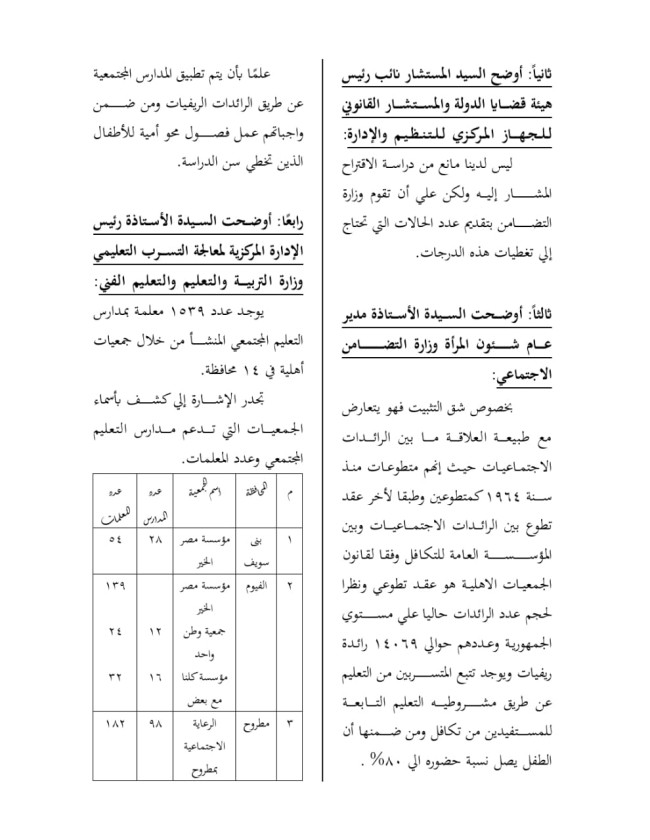 ثانياً: أوضح السيد المستشار نائب رئيس
هيئة قضايا الدولة والمستشار القانوني
للجهاز المركزي للتنظيم والإدارة:
ليس لدينا مانع من دراسة الاقتراح
المشار إليه ولكن علي أن تقوم وزارة
التضامن بتقديم عدد الحالات التي تحتاج
إلي تغطيات هذه الدرجات.
ثالثاً: أوضحت السيدة الأستاذة مدير
عام شئون المرأة وزارة التضامن
الاجتماعي:
بخصوص شق التثبيت فهو يتعارض
مع طبيعة العلاقة ما بين الرائدات
الاجتماعيات حيث إنهم متطوعات منذ
سنة ١٩٦٤ كمتطوعين وطبقا لأخر عقد
تطوع بين الرائدات الاجتماعيات وبين
المؤسسة العامة للتكافل وفقا لقانون
الجمعيات الاهلية هو عقد تطوعي ونظرا
لحجم عدد الرائدات حاليا علي مستوي
الجمهورية وعددهم حوالي ١٤٠٦٩ رائدة
ريفيات ويوجد تتبع المتسربين من التعليم
عن طريق مشروطيه التعليم التابعة
للمستفيدين من تكافل ومن ضمنها أن
الطفل يصل نسبة حضوره الي ٨٠% .
علمًا بأن يتم تطبيق المدارس المجتمعية
عن طريق الرائدات الريفيات ومن ضمن
واجباتهم عمل فصول محو أمية للأطفال
الذين تخطي سن الدراسة.
رابعًا: أوضحت السيدة الأستاذة رئيس
الإدارة المركزية لمعالجة التسرب التعليمي
وزارة التربية والتعليم والتعليم الفني:
يوجد عدد ١٥٣٩ معلمة بمدارس
التعليم المجتمعي المنشأ من خلال جمعيات
أهلية في ١٤ محافظة.
تجدر الإشارة إلي كشف بأسماء
الجمعيات التي تدعم مدارس التعليم
المجتمعي وعدد المعلمات.
م المحافظة اسم الجمعية عدد عدد
المدارس المعلمات
١ بنى مؤسسة مصر ٢٨ ٥٤
سويف الخير
٢ الفيوم مؤسسة مصر ١٣٩
الخير
جمعية وطن ١٢ ٢٤
واحد
مؤسسة كلنا ١٦ ٣٢
مع بعض
٣ مطروح الرعاية ٩٨ ١٨٢
الاجتماعية
بمطروح